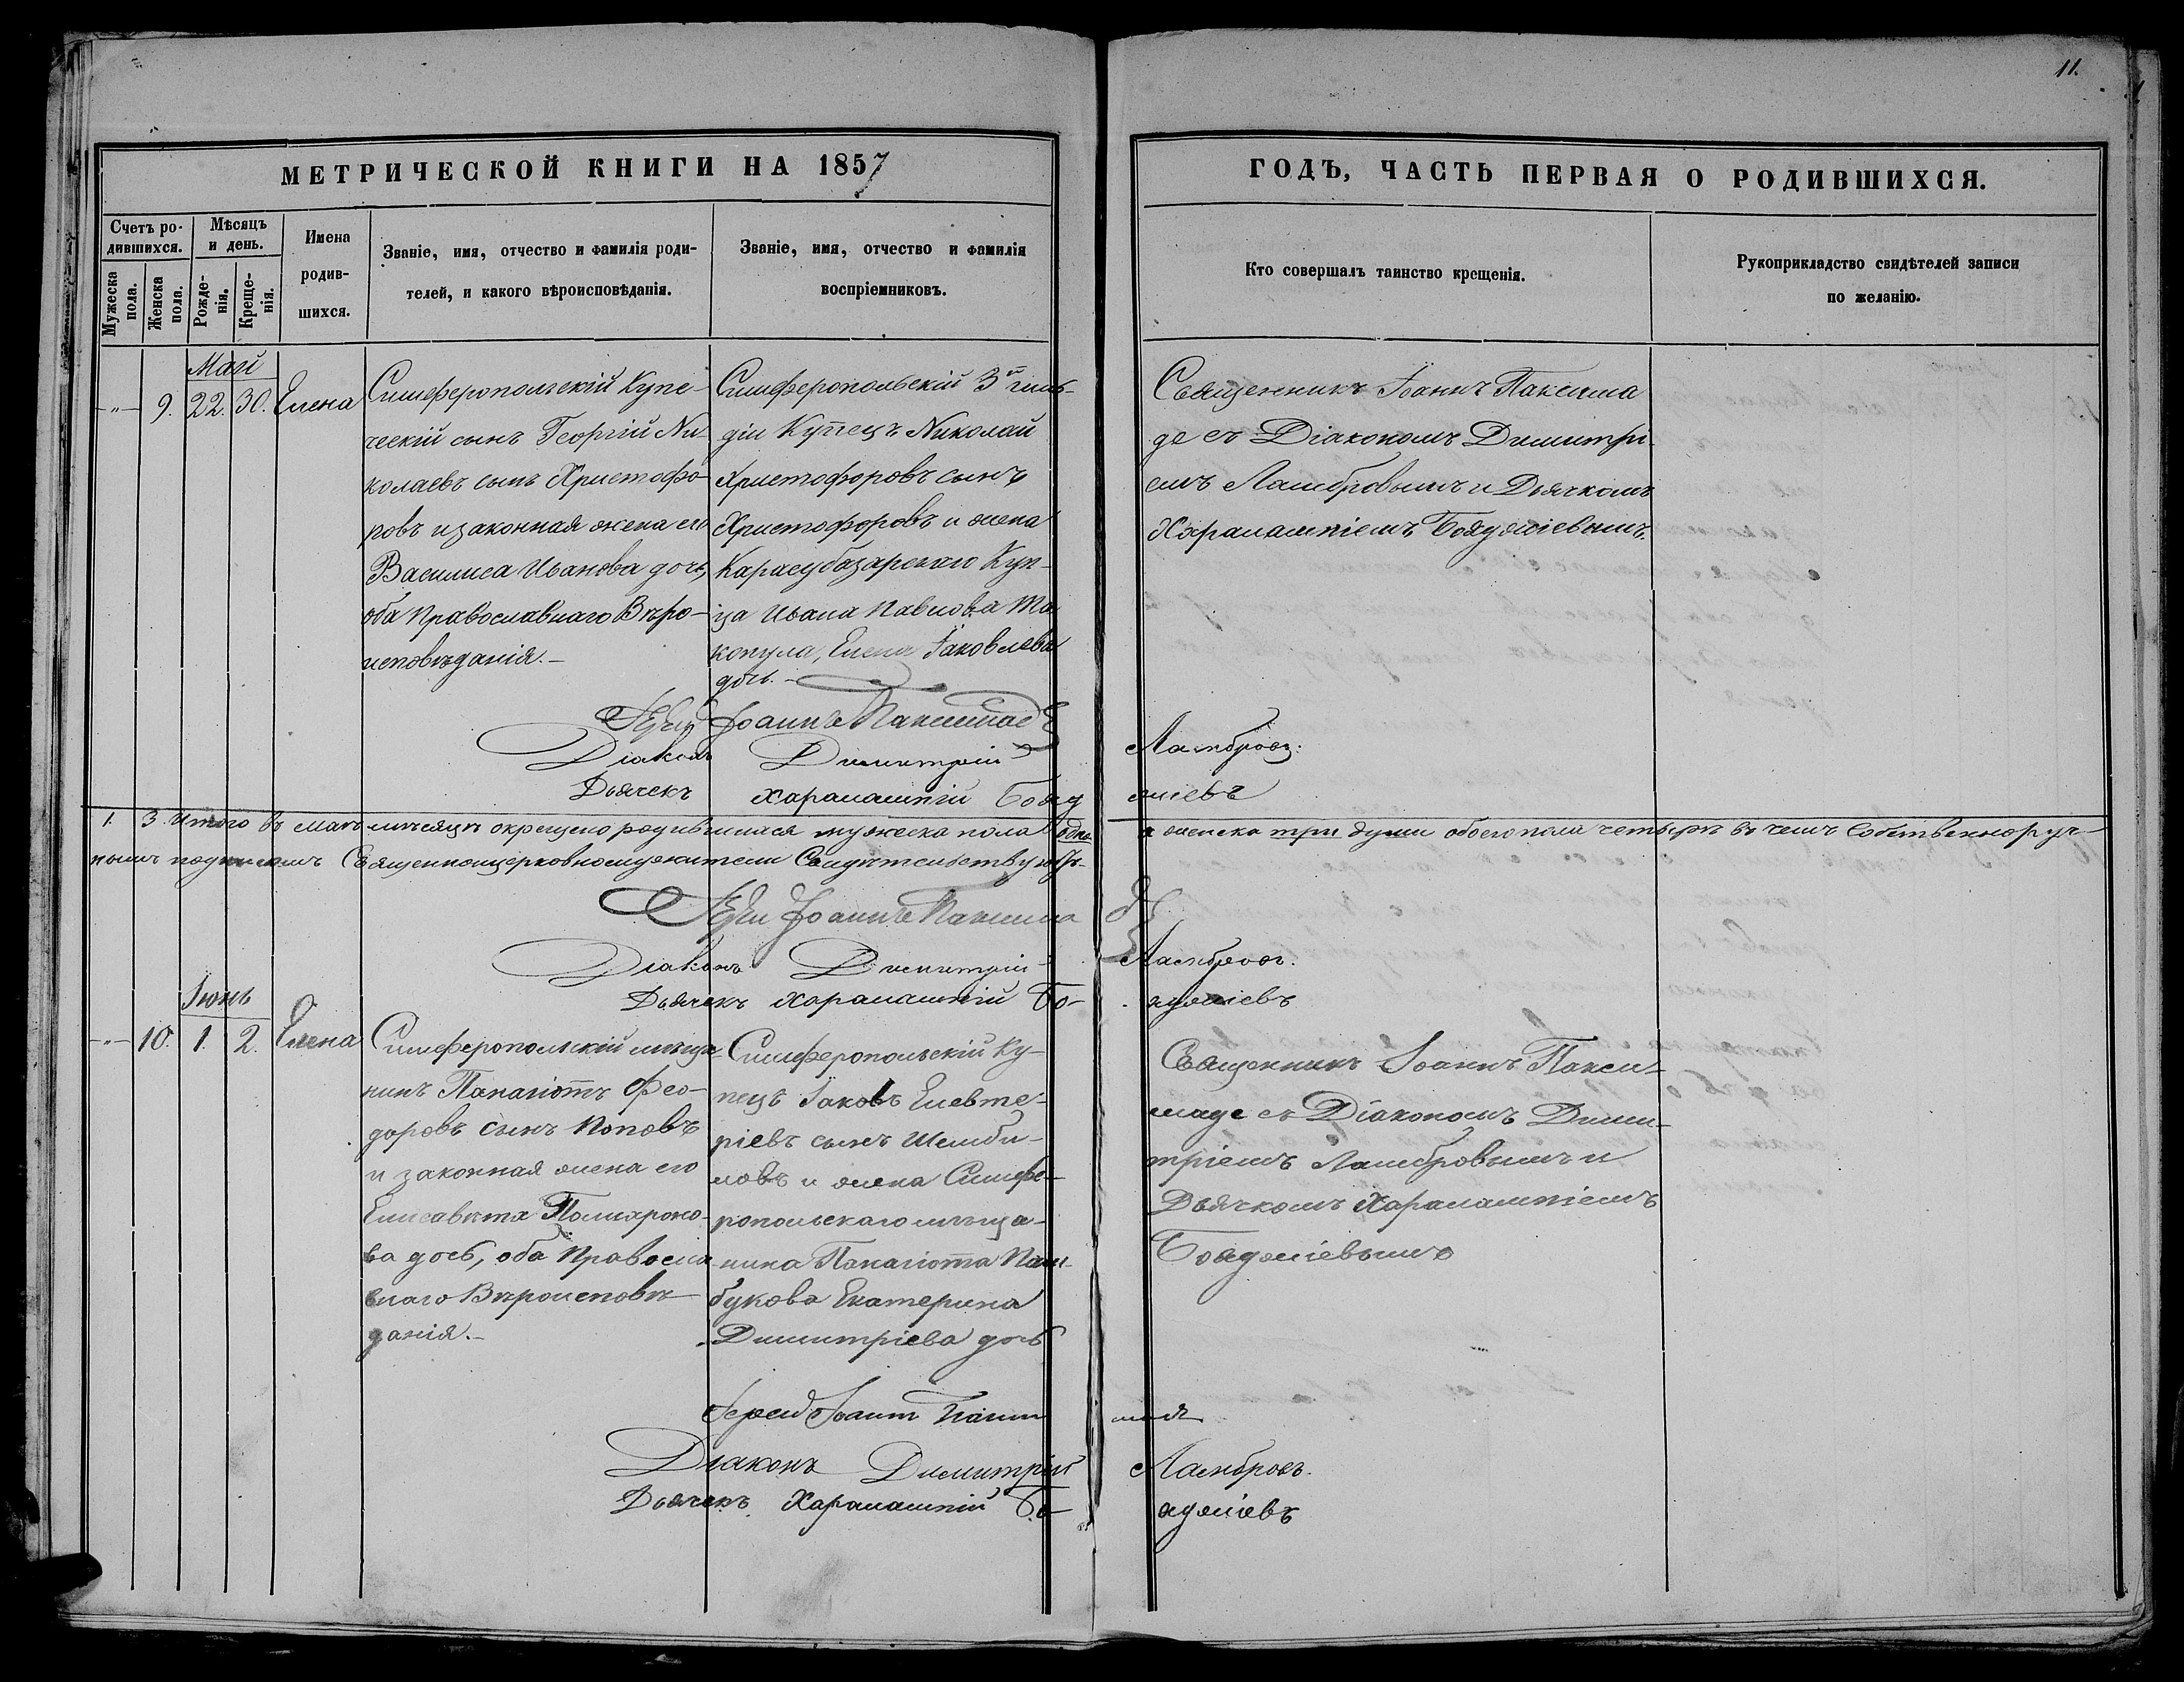 11.
МЕТРИЧЕСКОЙ КНИГИ НА 1857
ГОДЪ, ЧАСТЬ ПЕРВАЯ О РОДИВШИХСЯ.
Счетъ ро-
дившихся.
Мужеска пола.
Женска пола.
Мѣсяцъ
и день.
Рожде-
нія.
Креще-
нія.
Имена
родив-
шихся.
Званіе, имя, отчество и фамилія роди-
телей, и какого вѣроисповѣданія.
Званіе, имя, отчество и фамилія
воспріемниковъ.
Кто совершалъ таинство крещенія.
Рукоприкладство свидѣтелей записи
по желанію.
Май
-"- 9. 22. 30. Елена
Симферопольскій Купе-
ческій сынъ Георгій Ни-
колаевъ сынъ Христофо-
ровъ и законная жена его
Василиса Иванова дочь,
оба Православнаго Вѣро-
исповѣданія.-
Симферопольскій 3й гиль-
діи Купецъ Николай
Христофоровъ сынъ
Христофоровъ и жена
Карасубазарскаго Куп-
ца Ивана Павлова
копула, Елена Іаковлева
дочь.-
Священникъ Іоаннъ Паксима
де съ Діакономъ Димитрі-
емъ Ламбровымъ и Дьячкомъ
Харалампіемъ Бояджіевымъ.
Іерей Іоаннъ Паксимаде
Діаконъ Димитрій Ламбровъ.
Дьячекъ Харалампій Бояд жіевъ
1. 3. Итого въ маѣ мѣсяцѣ окрещено родившихся мужеска пола одна а женска три души обоего пола четыре въ чемъ собственноруч-
нымъ подписомъ Священноцерковнослужители Свидѣтельствуютъ.
Іерей Іоаннъ Паксима де
Діаконъ Димитрій Ламбровъ.
Дьячекъ Харалампій Бо- яджіевъ
Іюнь
-"- 10. 1. 2. Елена
Симферопольскій мѣща-
нинъ Панагіотъ Фео-
доровъ сынъ Поповъ
и законная жена его
Елисавета Поликроно-
ва дочь, оба Правосла-
внаго Вѣроисповѣ-
данія.-
Симферопольскій Ку-
пецъ Іаковъ Елевте-
ріевъ сынъ
ловъ и жена Симфе-
ропольскаго мѣща-
нина Панагіота Пам-
букова Екатерина
Димитріева дочь
Священникъ Іоаннъ Пакси-
маде съ Діакономъ Дими-
тріемъ Ламбровымъ и
Дьячкомъ Харалампіемъ
Бояджіевымъ
Іерей Іоаннъ
Діаконъ Димитрій Ламбровъ.
Дьячекъ Харалампій Бо- яджіевъ